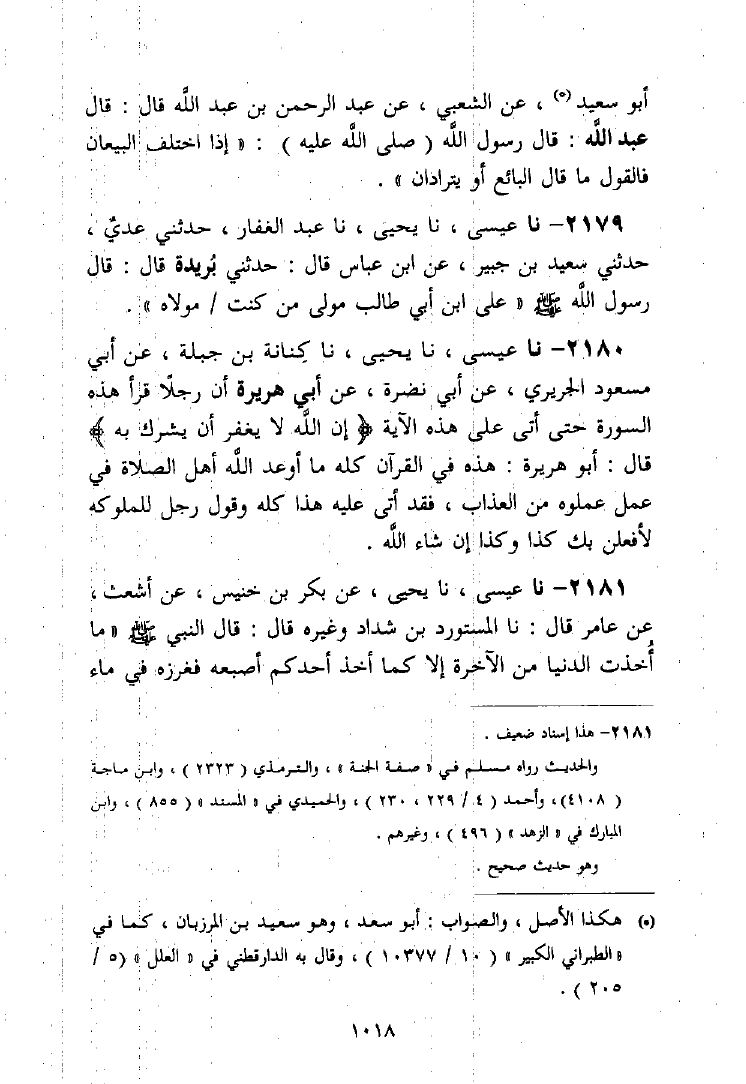 أبو سعيد(*) ، عن الشعبي ، عن عبد الرحمن بن عبد الله قال : قال
عبد الله : قال رسول الله ( صلى الله عليه ) : « إذا اختلف البيعان
فالقول ما قال البائع أو يترادان » .
٢١٧٩– نا عيسى ، نا يحيى ، نا عبد الغفار ، حدثني عديٌ ،
حدثني سعيد بن جبير ، عن ابن عباس قال : حدثني بُريدة قال : قال
رسول الله ﷺ « على ابن أبي طالب مولى من كنت / مولاه » .
٢١٨٠– نا عيسى ، نا يحيى ، نا كِنانة بن جبلة ، عن أبي
مسعود الجريري ، عن أبي نضرة ، عن أبي هريرة أن رجلًا قرأ هذه
السورة حتى أتى على هذه الآية ﴿ إن الله لا يغفر أن يشرك به ﴾
قال : أبو هريرة : هذه في القرآن كله ما أوعد الله أهل الصلاة في
عمل عملوه من العذاب ، فقد أتى عليه هذا كله وقول رجل للملوكه
لأفعلن بك كذا وكذا إن شاء الله .
٢١٨١– نا عيسى ، نا يحيى ، عن بكر بن خنيس ، عن أشعث ،
عن عامر قال : نا المستورد بن شداد وغيره قال : قال النبي ﷺ « ما
أُخذت الدنيا من الآخرة إلا كما أخذ أحدكم أصبعه فغرزه في ماء
٢١٨١– هذا إسناد ضعيف .
والحديث رواه مسلم في « صفة الجنة » ، والترمذي ( ٢٣٢٣ ) ، وابن ماجة
( ٤١٠٨ )، وأحمد ( ٤ / ٢٢٩ ، ٢٣٠ ) ، والحميدي في « المسند » ( ٨٥٥ ) ، وابن
المبارك في « الزهد » ( ٤٩٦ ) ، وغيرهم .
وهو حديث صحيح .
(*) هكذا الأصل ، والصواب : أبو سعد ، وهو سعيد بن المرزبان ، كما في
« الطبراني الكبير » ( ١٠ / ١٠٣٧٧ ) ، وقال به الدارقطني في « العلل » (٥ /
٢٠٥ ) .
١٠١٨